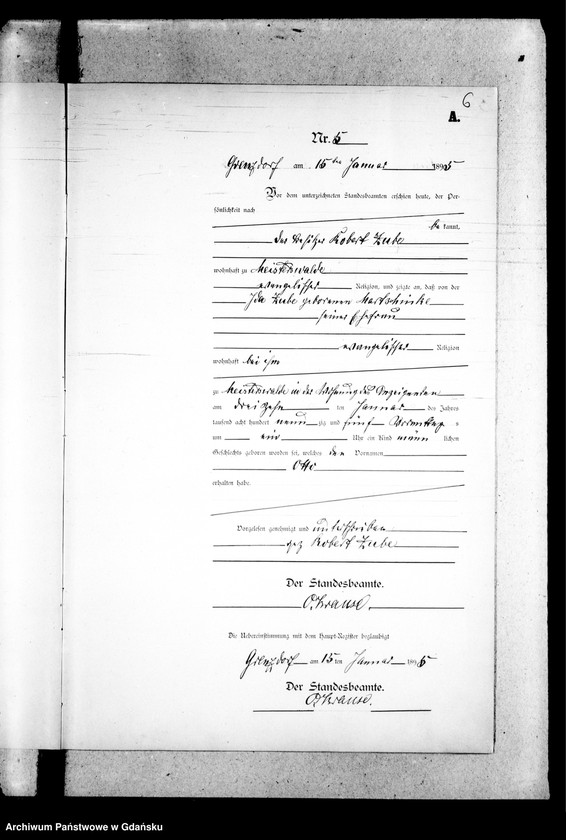 6
A.
Nr. 5
Grenzdorf am 15ten Januar 1895
Vor dem unterzeichneten Standesbeamten erschien heute, der Per-
sönlichkeit nach
bekannt,
der Besitzer Robert Zube
wohnhaft zu Meisterswalde
evangelischer Religion, und zeigte an, daß von der
Ida Zube geborenen Martschinke
seiner Ehefrau
evangelischer Religion
wohnhaft bei ihm
zu Meisterswalde in der Wohnung des Anzeigenden
am dreizehn ten Januar des Jahres
tausend acht hundert neunzig und fünf Vormittags
um ein Uhr ein Kind männlichen
Geschlechts geboren worden sei, welches den Vornamen
Otto
erhalten habe.
Vorgelesen, genehmigt und unterschrieben
gez Robert Zube
Der Standesbeamte.
O. Krause.
Die Uebereinstimmung mit dem Haupt-Register beglaubigt
Grenzdorf am 15ten Januar 1895
Der Standesbeamte.
O. Krause.
Archiwum Państwowe w Gdańsku